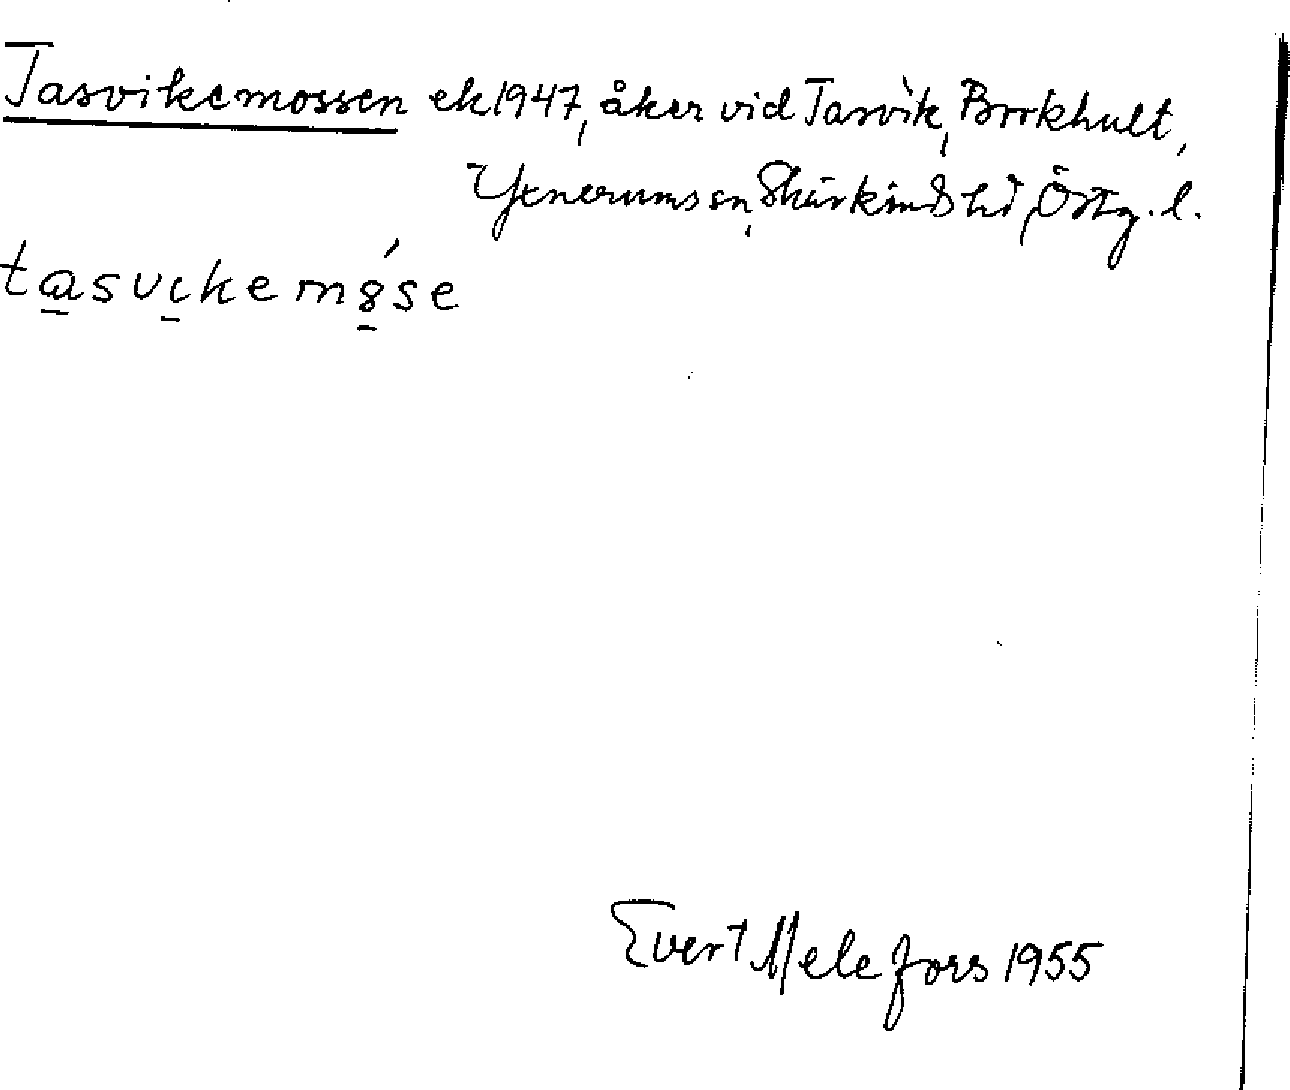 Tasvikemossen ek 1947, åker vid Tasvik, Brokhult,
Yxnerums sn, Skärkinds hd, Östg. l.
tasvikemóse
Evert Melefors 1955